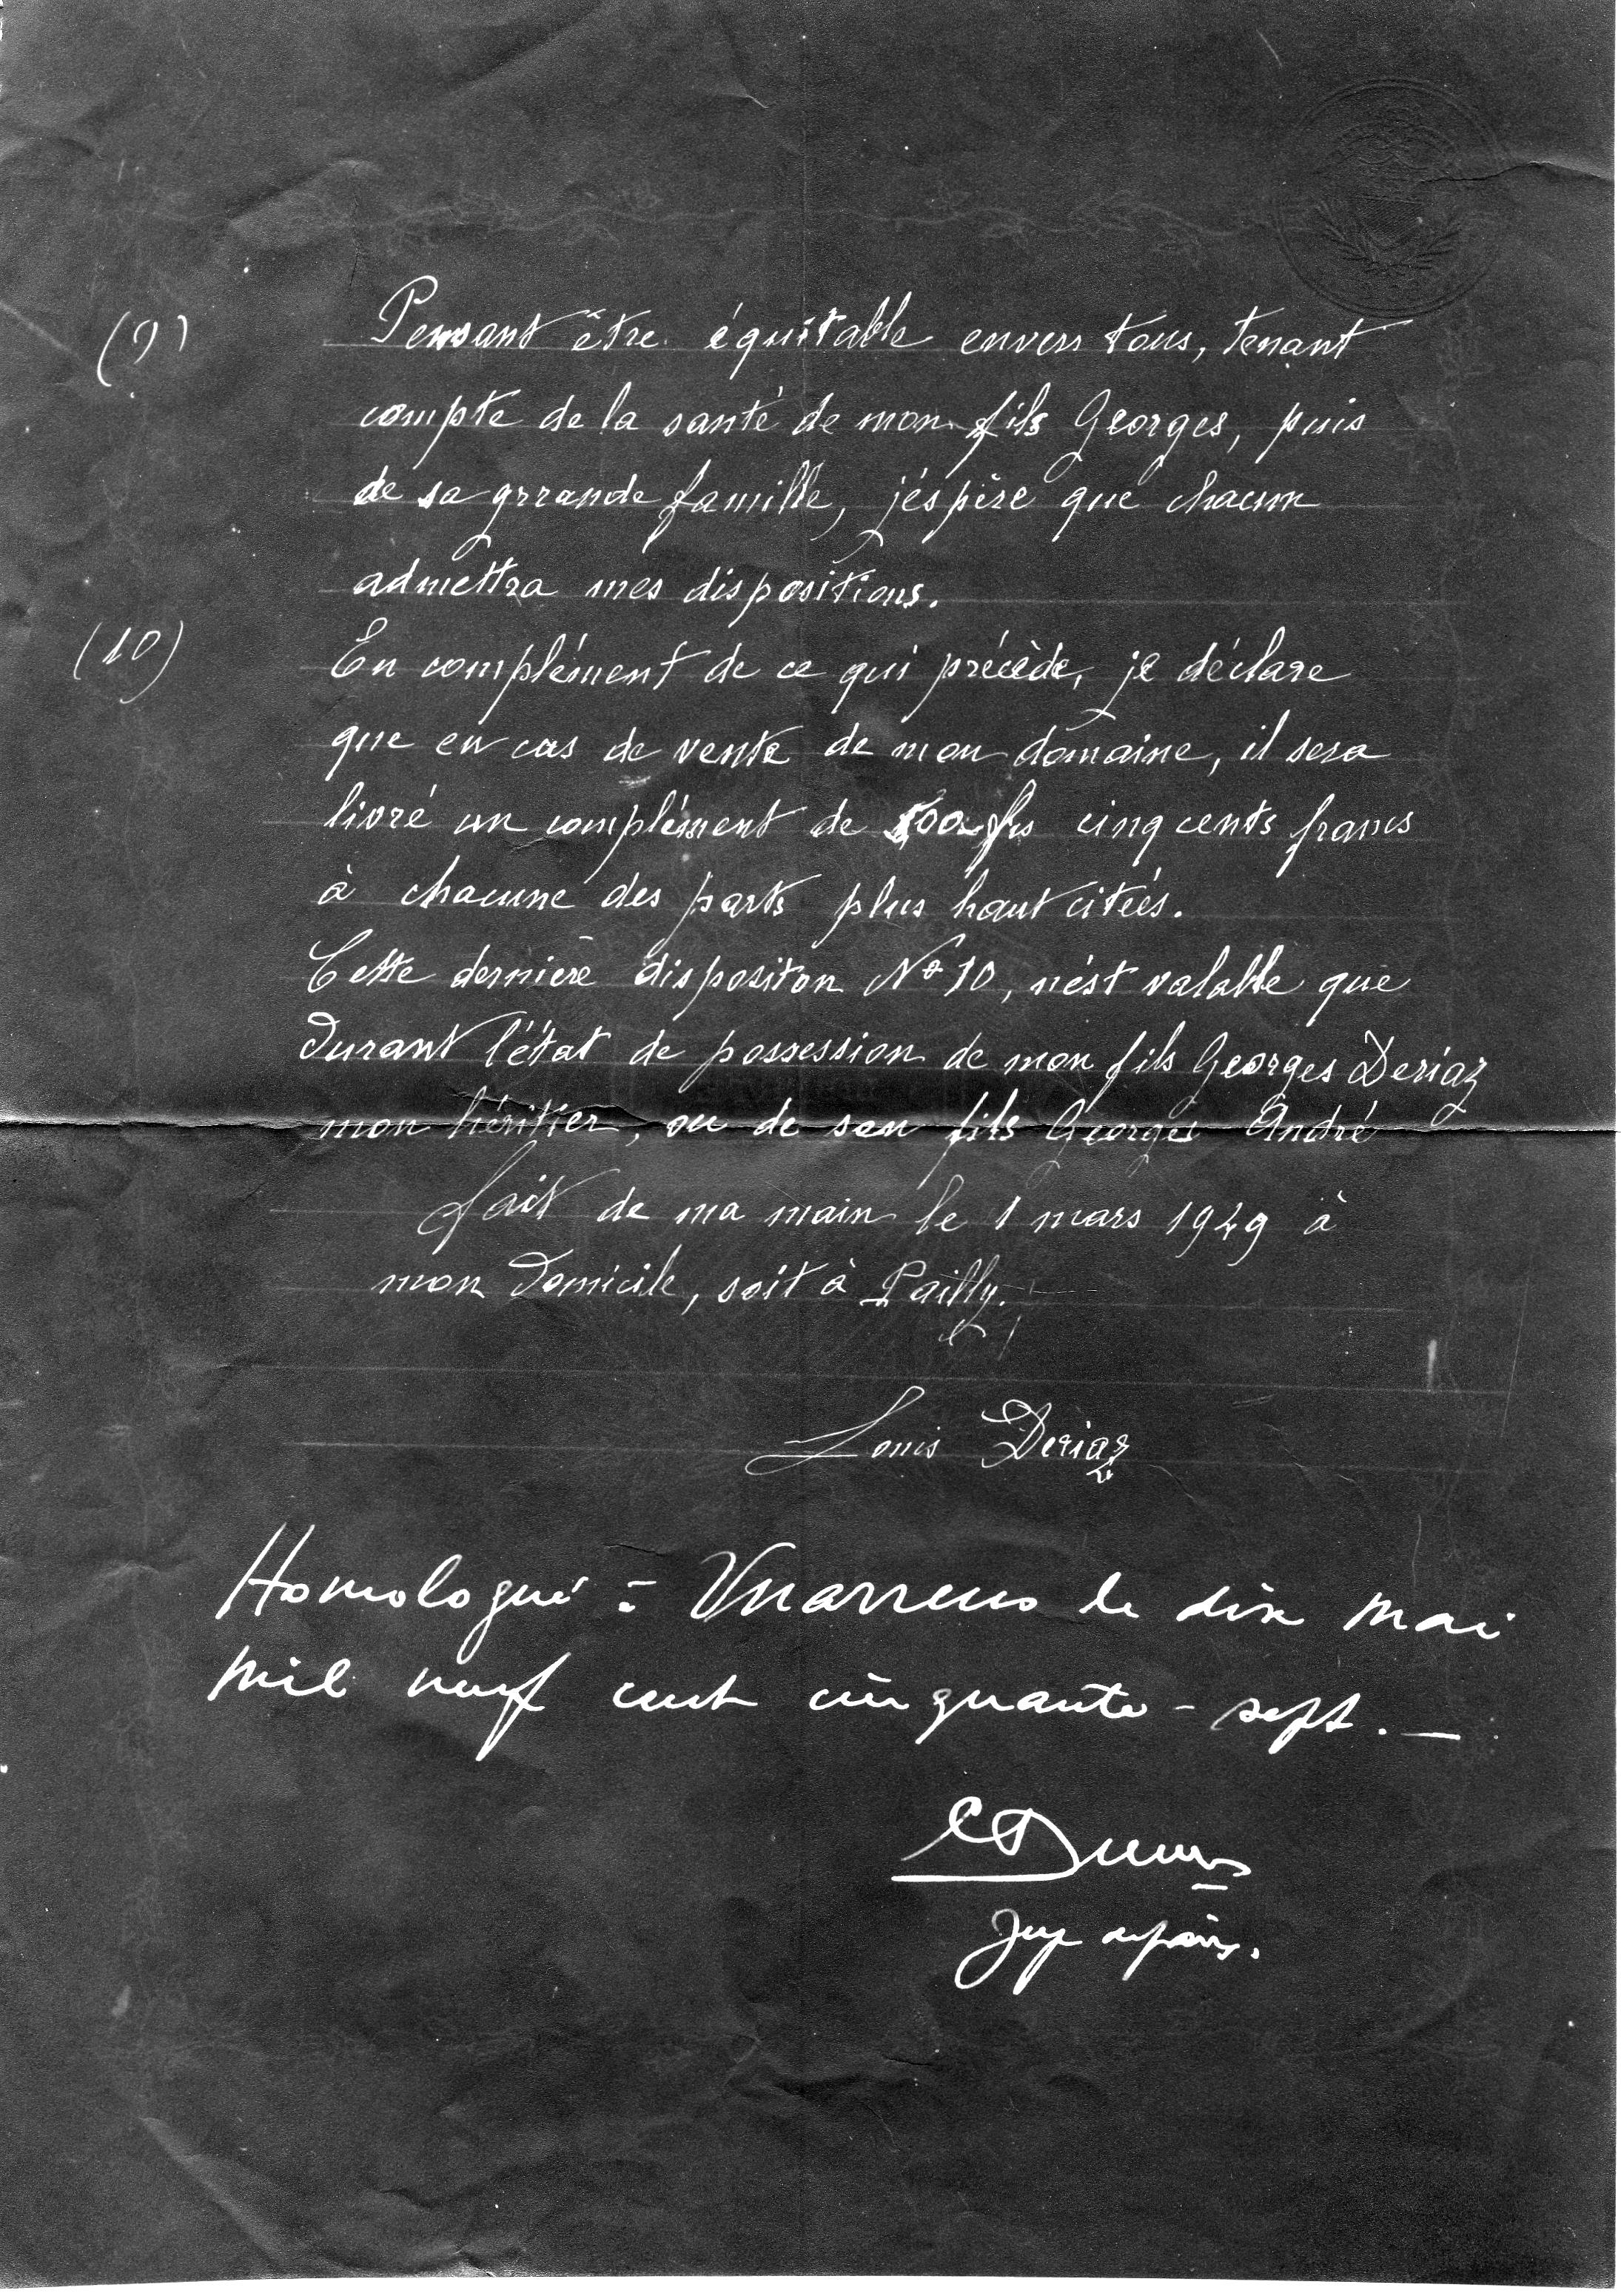 (9) Pensant être équitable envers tous, tenant
compte de la santé de mon fils Georges, puis
de sa grrande famille, j'éspère que chacun
admettra mes dispositions.
(10) En complément de ce qui précède, je déclare
que en cas de vente de mon domaine, il sera
livré un complément de 500 frs cinq cents francs
à chacune des parts plus haut citées.
Cette dernière dispositon No 10, n'ést valable que
durant l'état de possession de mon fils Georges Deriaz
mon héritier, ou de son fils Georges André
fait de ma main le 1 mars 1949 à
mon domicile, soit à Pailly.
Louis Deriaz
Homologué : Vuarrens le dix mai
mil neuf cent cinquante-sept. —
Juge de paix.